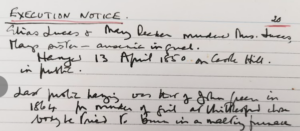 EXECUTION NOTICE. 20
Elias Lucas & Mary Reeder murdered Mrs. Lucas,
Mary's sister - arsenic in gruel.
Hanged 13 April 1850 on Castle Hill.
in public.
Last public hanging was that of John Green in
1864 for murder of girl at Whittlesford whose
body he tried to burn in a malting furnace